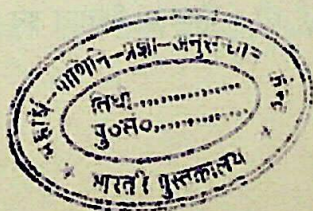 महर्षि-पाणिनि-प्रज्ञा-अनुसन्धान
तिथि..................
पु०सं०..................
* भारती पुस्तकालय *